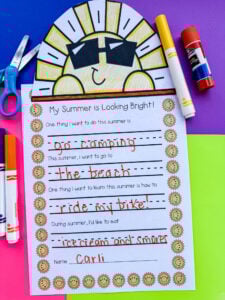 My Summer is Looking Bright!
One thing I want to do this summer is
go camping
This summer, I want to go to
the beach
One thing I want to learn this summer is how to
ride my bike
During summer, I'd like to eat
icecream and smores
Name Carli